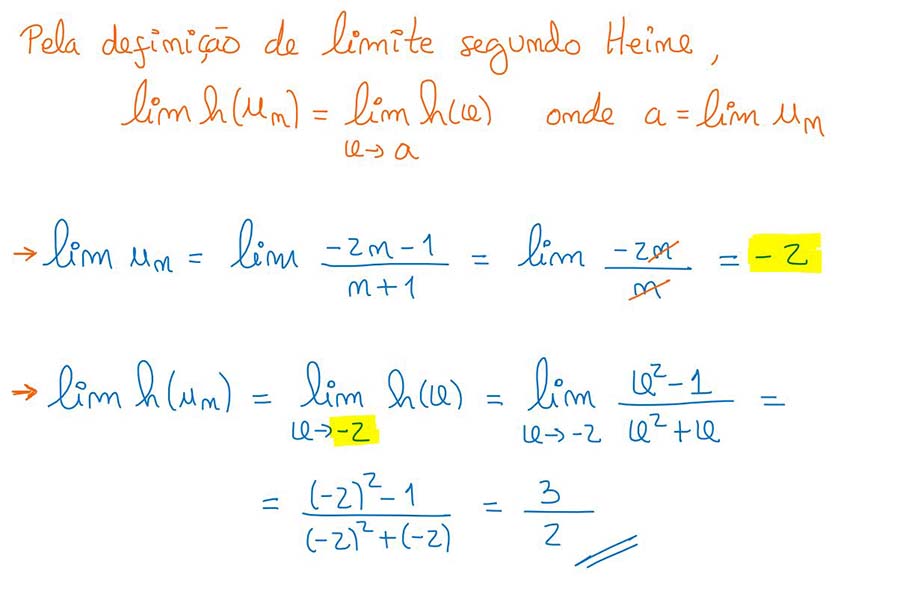 Pela definição de limite segundo Heine,
lim h(uₙ) = lim h(x) onde a = lim uₙ
x→a
→ lim uₙ = lim (-2n-1)/(n+1) = lim (-2n)/n = -2
→ lim h(uₙ) = lim h(x) = lim (x²-1)/(x²+x) =
x→-2 x→-2
= ((-2)²-1)/((-2)²+(-2)) = 3/2